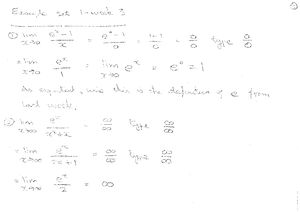 Example set 1 - week 3
① lim x→0 (e^x - 1)/x = (e^0 - 1)/0 = (1-1)/0 = 0/0 type 0/0
= lim x→0 e^x/1 = lim x→0 e^x = e^0 = 1
As expected, since this is the definition of e from
last week.
② lim x→∞ e^x/(x²+x) = ∞/∞ type ∞/∞
= lim x→∞ e^x/(2x+1) = ∞/∞ type ∞/∞
= lim x→∞ e^x/2 = ∞